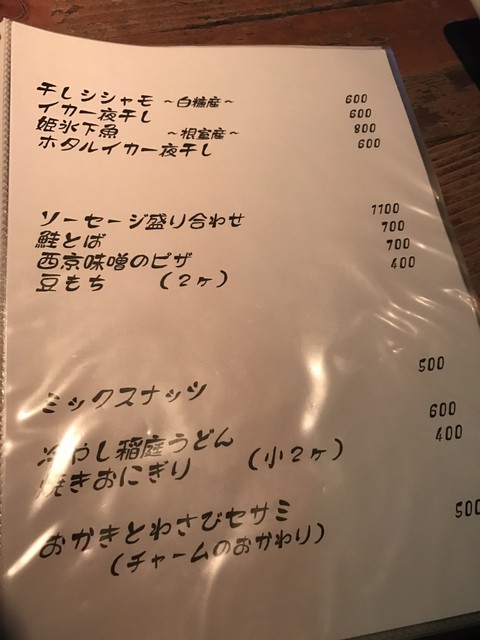 干しシシャモ ～白糠産～ 600
イカ一夜干し 600
姫氷下魚 ～根室産～ 800
ホタルイカ一夜干し 600
ソーセージ盛り合わせ 1100
鮭とば 700
西京味噌のピザ 700
豆もち (2ヶ) 400
ミックスナッツ 500
冷やし稲庭うどん 600
焼きおにぎり (小2ヶ) 400
おかきとわさびセサミ 500
(チャームのおかわり)